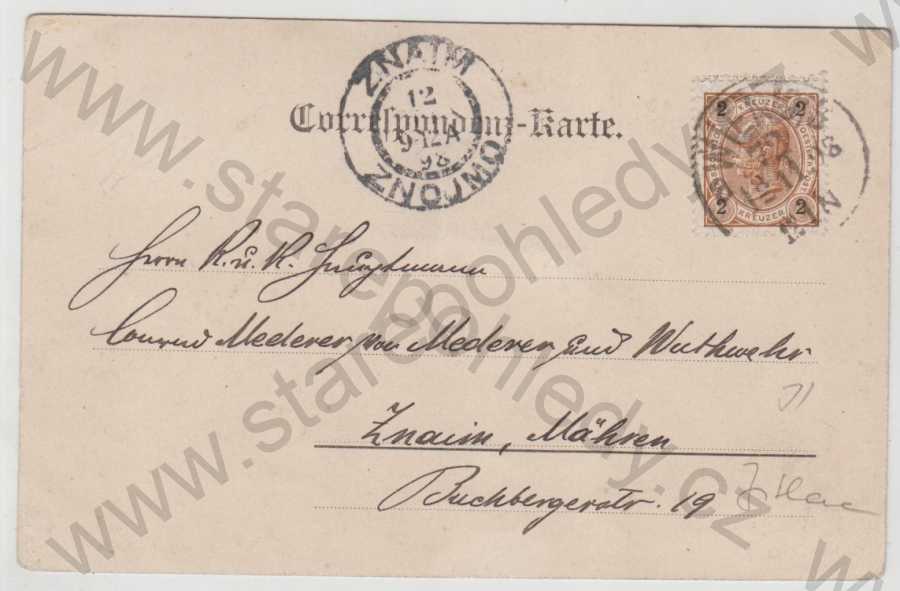 ZNAIM
12
9-12A
98
ZNOJMO
Correspondenz-Karte.
2 KREUZER 2
2 KREUZER 2
WIEN
Herrn K. u. K. Hauptmann
Conrad Mederer von Mederer und Wuthwehr
Znaim, Mähren
Buchbergerstr. 19
www.starepohledy.cz
www.starepohledy.cz